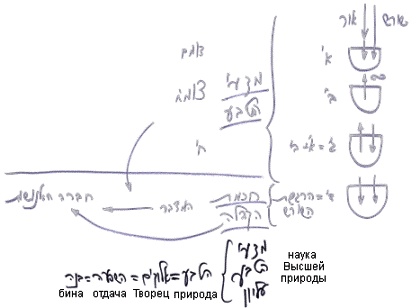 אור שורש
א'
דומם
ב' ∞
צומח מדעי
הטבע
חי
חכמת המדבר חברה
הקבלה
מדעי
הטבע=אלוקים=השפעה=בינה הטבע
עליון
наука
Высшей
природы
бина отдача Творец природа